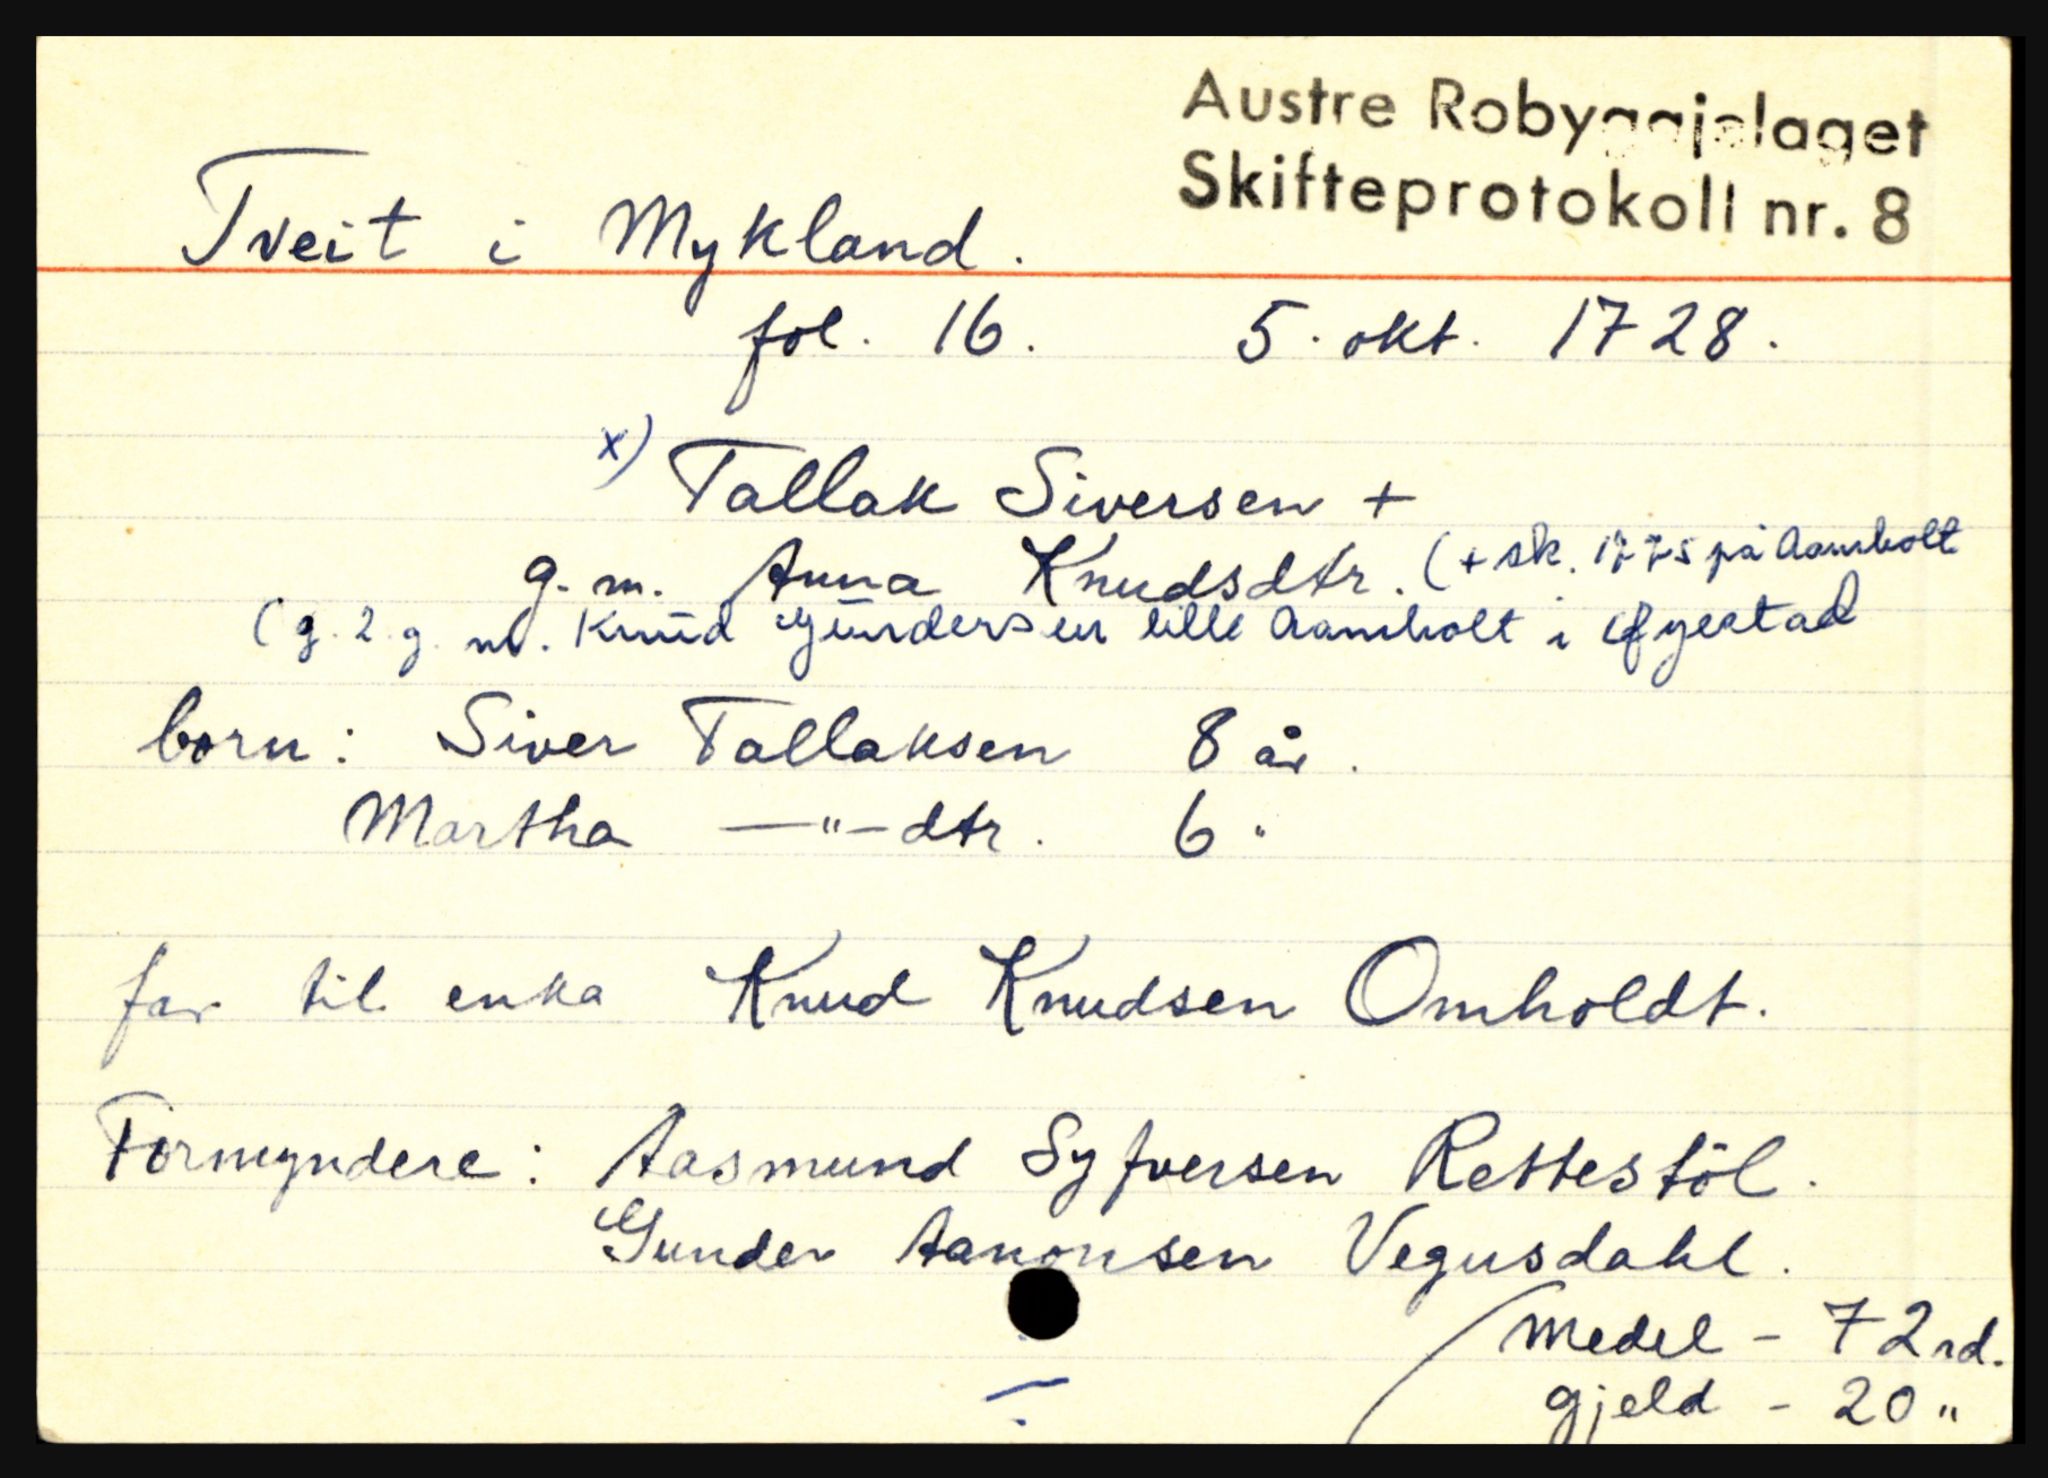 Austre Robyggjelaget
Skifteprotokoll nr. 8
Tveit i Mykland.
fol. 16. 5. okt. 1728.
x) Tallak Siversen +
g. m. Anna Knudsdtr. (+ sk. 1775 på Aamholt
(g. 2. g. m. Knud Gundersen lille Aamholt i Gjestad
born: Siver Tallaksen 8 år.
Martha —"— dtr. 6 "
far til enka Knud Knudsen Omholdt.
Formyndere: Aasmund Syfversen Rettestöl.
Gunder Aanonsen Vegusdahl.
Medel - 72 rd.
gjeld - 20 "